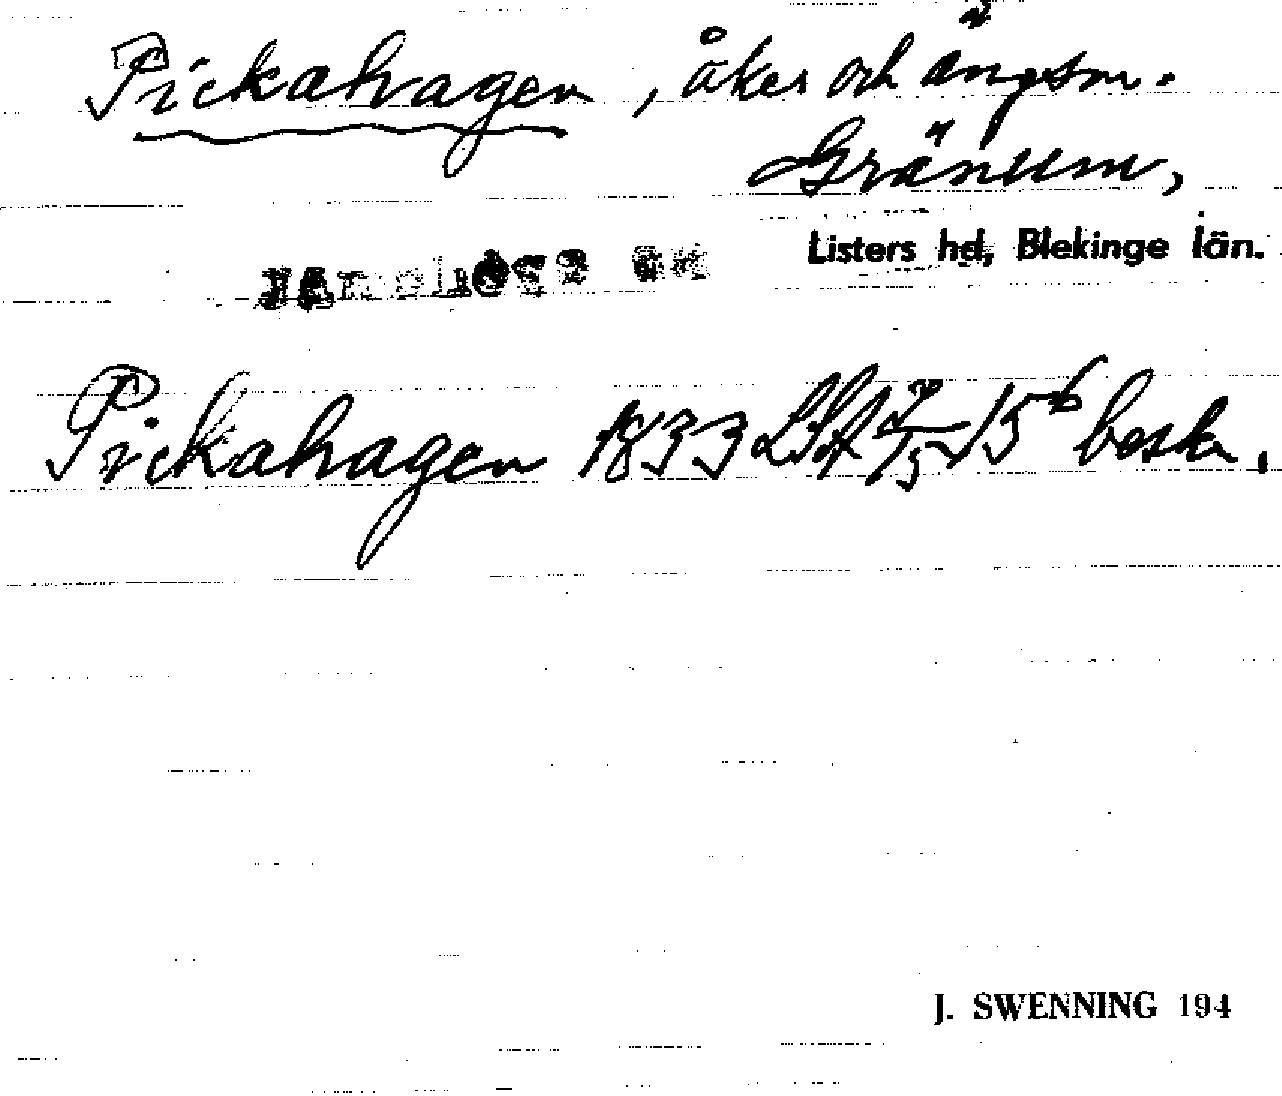 Pickahagen, åker och ängsm.
Gränum,
Listers hd, Blekinge län.
Jämshögs sn
Pickahagen 1833 LSA beskr.
J. SWENNING 194